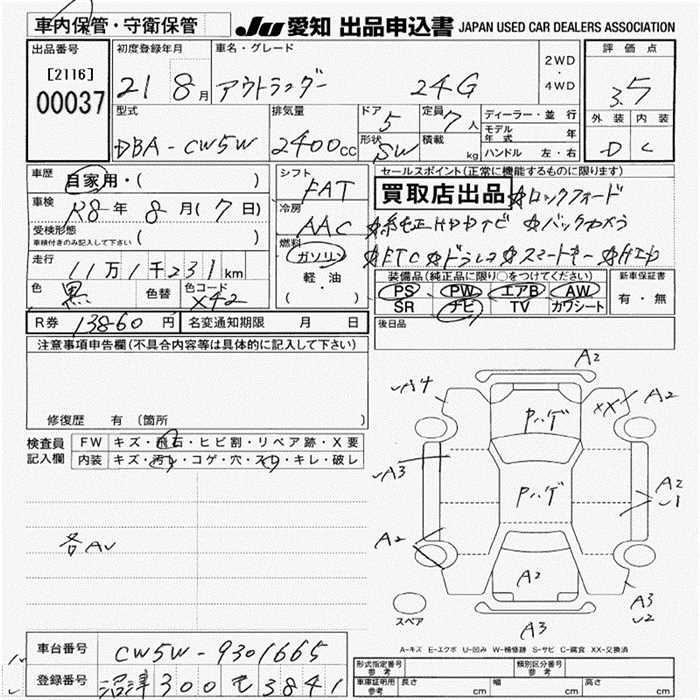 車内保管・守衛保管 JU 愛知 出品申込書 JAPAN USED CAR DEALERS ASSOCIATION
出品番号 初度登録年月 車名・グレード 評価点
[2116] 21 8月 アウトランダー 24G 2WD・4WD 3.5
00037 外装 内装
型式 排気量 ドア 5 定員 7人 ディーラー・並行 D C
DBA-CW5W 2400cc 形状 SW 積載 kg モデル年式 年
ハンドル 左・右
車歴 自家用・( ) シフト FAT セールスポイント(正常に機能するものに限ります)
車検 R8年 8月 (7日) 冷房 AAC 買取店出品 ☆ロックフォード
受検形態 車検付きのみ記入して下さい ( ) ☆純正HDDナビ ☆バックカメラ
燃料 ガソリン 軽・油 ( ) ☆ETC ☆ドラレコ ☆スマートキー ☆
走行 11万1千231km 装備品(純正品に限り○をつけてください) 新車保証書
色 黒 色替 色コード X42 PS PW エアB AW 有・無
SR ナビ TV カワシート
R券 13860円 名変通知期限 月 日 後日品
注意事項申告欄(不具合内容等は具体的に記入して下さい)
修復歴 有 (箇所 )
検査員記入欄 FW キズ・飛石・ヒビ割・リペア跡・X要
内装 キズ・汚レ・コゲ・穴・スレ・キレ・破レ
各AU
A2
A4 XX A2
Pハゲ
A3 Pハゲ A2 U1
A2
A2 A3 U2
スペア A3
A-キズ E-エクボ U-凹み W-補修跡 S-サビ C-腐食 XX-交換済
車台番号 CW5W-9301665
登録番号 沼津 300 て 3841
形式指定番号 参考 類別区分番号 参考
車庫証明用 参考 長さ cm 幅 cm 高さ cm